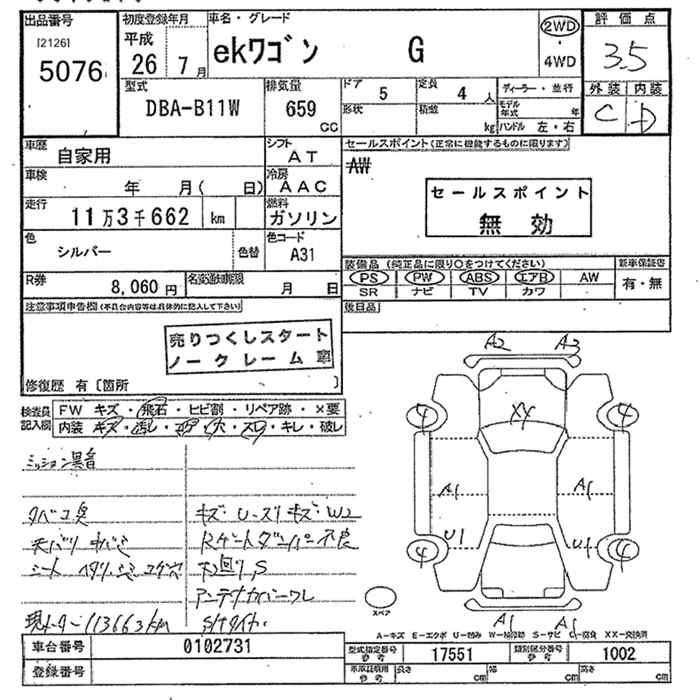 出品番号 初度登録年月 車名・グレード 評価点
[2126]
5076
平成
26 7月
ekワゴン G
2WD
・
4WD
3.5
外装 内装
C D
型式 DBA-B11W
排気量 659 CC
ドア 5
定員 4 人
形状 積載 kg
ディーラー・並行
モデル年式 年
ハンドル 左・右
車歴 自家用
シフト AT
車検 年 月( 日)
冷房 AAC
走行 11万3千662 km
燃料 ガソリン
色 シルバー 色替
色コード A31
R券 8,060円
名変通知期限 月 日
セールスポイント(正常に機能するものに限ります)
AW
セールスポイント
無効
装備品(純正品に限り○をつけてください) 新車保証書
PS PW ABS エアB AW 有・無
SR ナビ TV カワ
後日品
注意事項申告欄(不具合内容等は具体的に記入して下さい)
売りつくしスタート
ノークレーム車
修復歴 有〔箇所 〕
検査員記入欄
FW キズ・飛石・ヒビ割・リペア跡・×要
内装 キズ・汚レ・コゲ・穴・スレ・キレ・破レ
ミッション異音
タバコ臭
天バリ キバミ
シート
現メーター113663km
キズ・U・スリキズ・W2
Rゲートダンパー不良
下回りS
アンテナカバーワレ
A2 A3
XX
4 4
A1 A1
U1 U1
4 4
A1
A1
スペア
A-キズ E-エクボ U-凹み W-補修跡 S-サビ C-腐食 XX-交換済
車台番号 0102731
登録番号
型式指定番号 参考 17551
類別区分番号 参考 1002
車庫証明用 参考 長さ cm 幅 cm 高さ cm